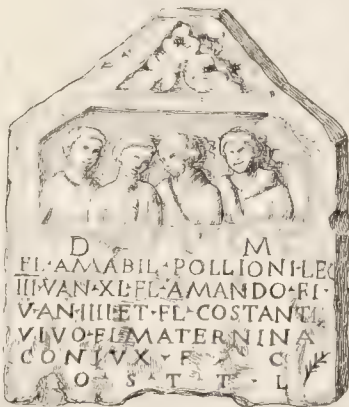 D M
FL·AMABIL·POLLIONI·LEG
III·V·AN·XL·FL·AMANDO·FI·
V·AN·IIII·ET·FL·COSTANTI
VIVO·FL·MATERNINA
CONIVX·F·C
O·S·T·T·L